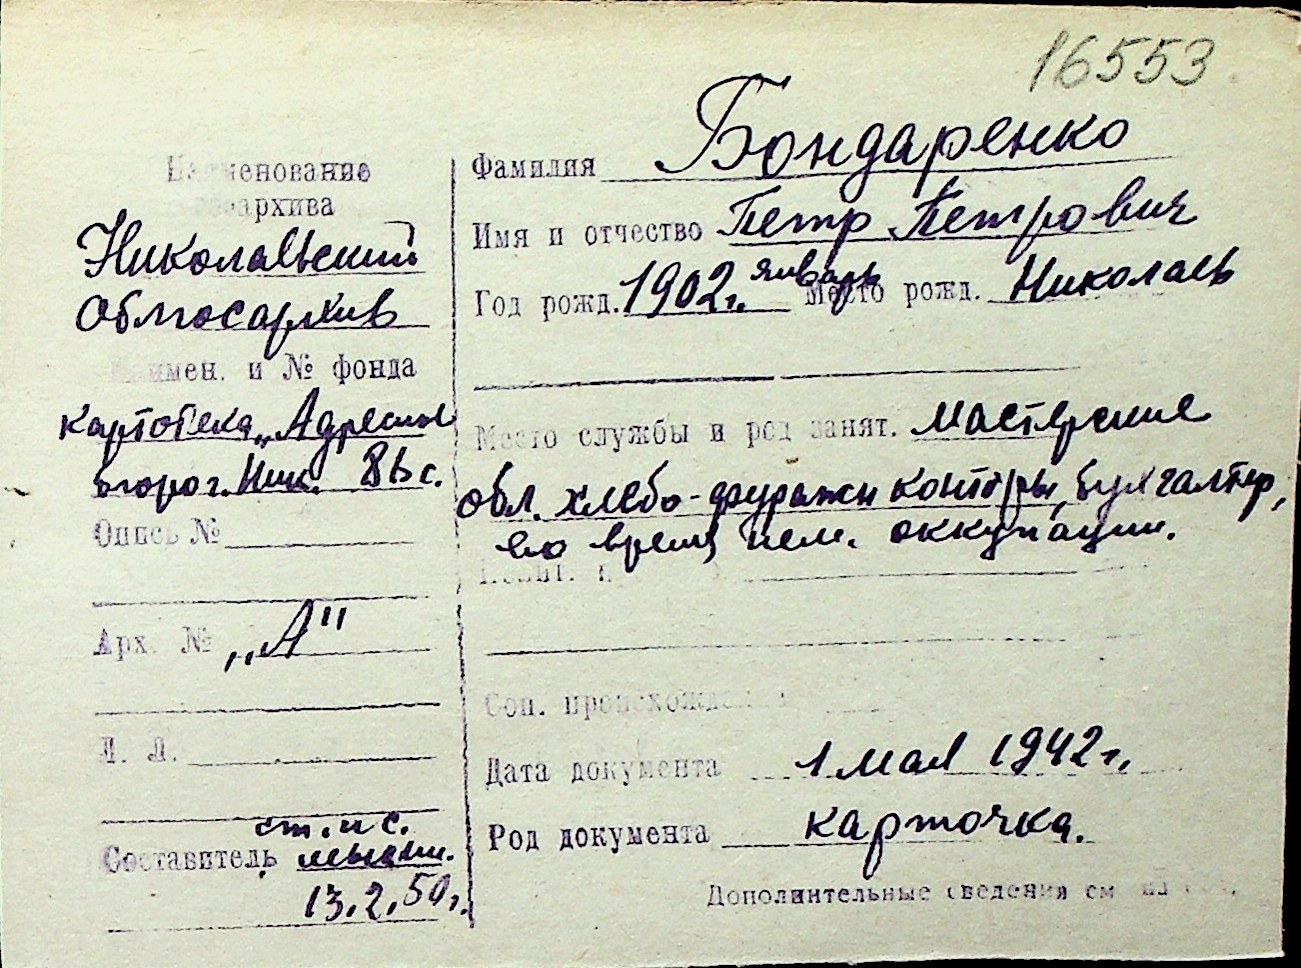 16553
Наименование
госархива
Николаевский
Облгосархив
Наимен. и № фонда
картотека „Адресный
г. Ник. 8
Опись №
Арх. № „А"
Л. Л.
ст. н с.
Составитель
13.2.50г.
Фамилия Бондаренко
Имя и отчество Петр Петрович
Год рожд. 1902г. январь Место рожд. Николаев
Место службы и род занят. мастерские
обл. хлебо-фуражн конторы, бухгалтер,
во время нем. оккупации.
Соц. происхождение
Дата документа 1 мая 1942г.
Род документа карточка.
Дополнительные сведения см на